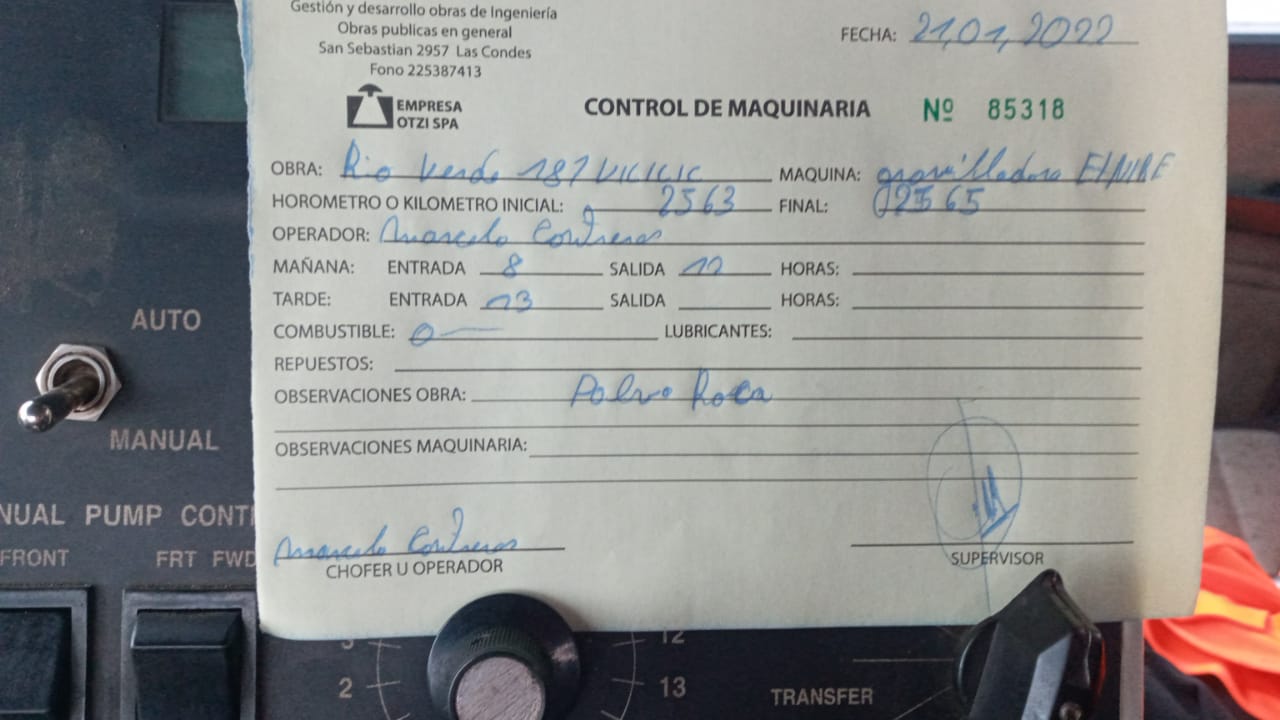 Gestión y desarrollo obras de Ingeniería
Obras publicas en general
San Sebastian 2957 Las Condes
Fono 225387413
FECHA: 21,01,2022
EMPRESA
OTZI SPA
CONTROL DE MAQUINARIA Nº 85318
OBRA: Rio Verde MAQUINA: gravilladora
HOROMETRO O KILOMETRO INICIAL: 2563 FINAL: 2565
OPERADOR: Marcelo Contreras
MAÑANA: ENTRADA 8 SALIDA 12 HORAS:
TARDE: ENTRADA 13 SALIDA HORAS:
COMBUSTIBLE: 0 LUBRICANTES:
REPUESTOS:
OBSERVACIONES OBRA: Polvo Roca
OBSERVACIONES MAQUINARIA:
Marcelo Contreras
CHOFER U OPERADOR SUPERVISOR
AUTO
MANUAL
NUAL PUMP CONT
FRONT FRT FWD
2 12
13
TRANSFER